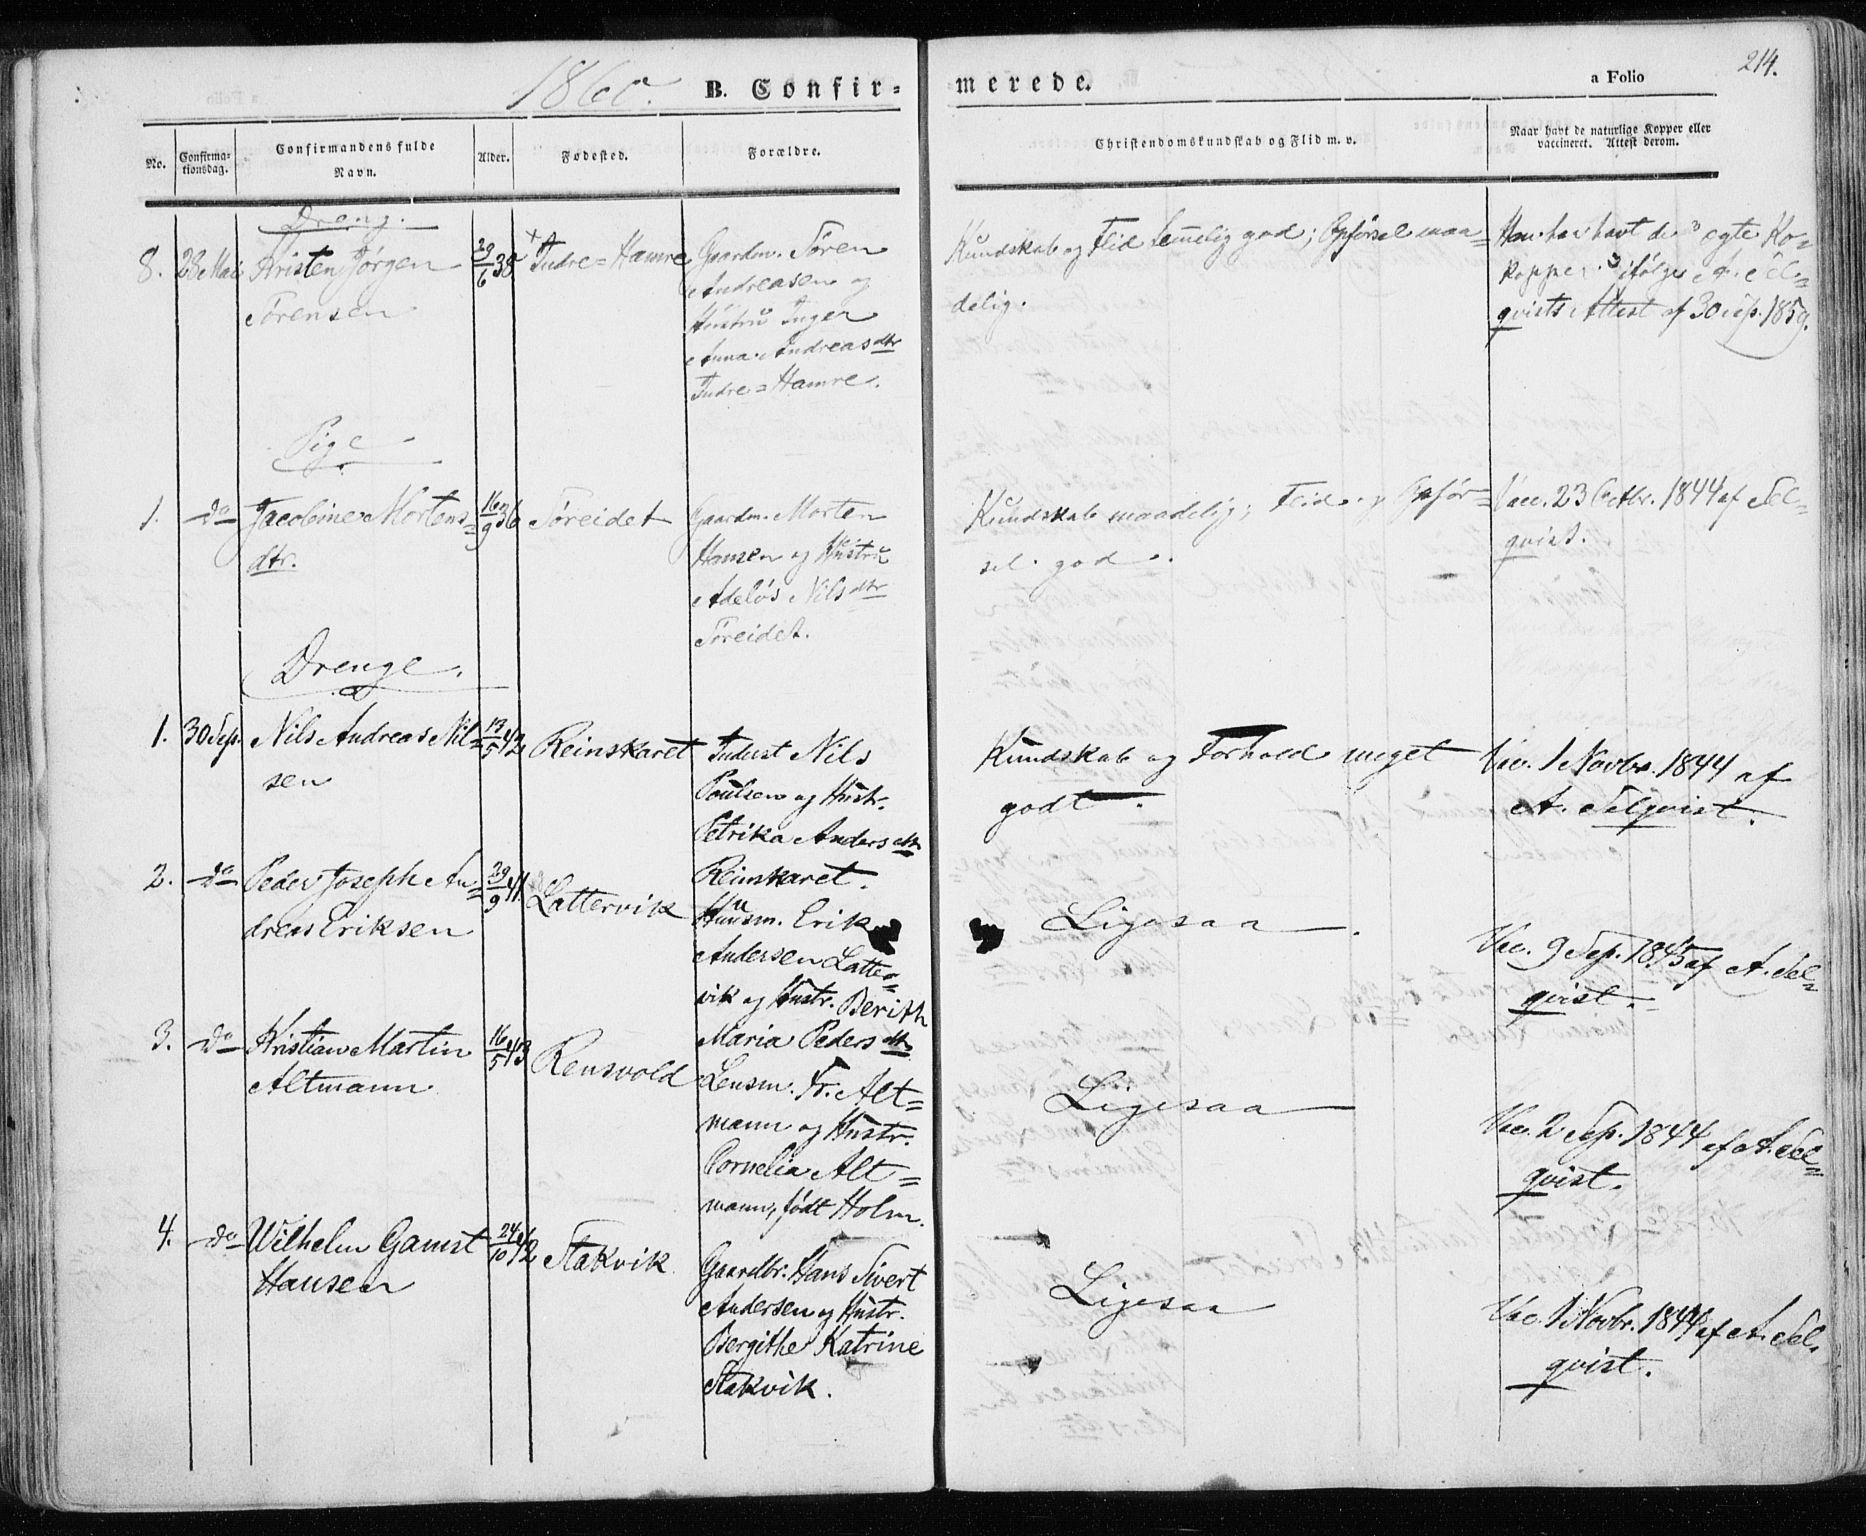 1860.
B. Confir-
merede.
a Folio
214.
No.
Confirma-
tionsdag.
Confirmandens fulde
Navn.
Alder.
Fødested.
Forældre.
Christendomskundskab og Flid m. v.
Naar havt de naturlige Kopper eller
vaccineret. Attest derom.
Dreng.
8. 28 Mai Kristen Jørgen
Sørensen
29/6 38
Indre=Hamre
Gaardm. Søren
Andreasen og
Hustru Inger
Anna Andreasdtr
Indre=Hamre.
Kundskab og Flid temelig god; Opførsel maa=
delig.
Han har havt de egte Ko-
kopper ifølge A. Sel=
qvists Attest af 30 Sep. 1859.
Pige
1. do Jacobine Mortens=
dtr.
16/9 36
Søreidet
Gaardm. Morten
Hansen og Hustru
Adeløs Nilsdtr
Søreidet.
Kundskab maadelig; Flid og Opfør=
sel god.
Vac. 23 Octbr. 1844 af Sel=
qvist.
Drenge.
1. 30 Sep. Nils Andreas Nil=
sen
13/5 42
Reinskaret
Inderst Nils
Poulsen og Hustr.
Petrika Andersdtr
Reinskaret.
Kundskab og Forhold meget
godt.
Vac. 1 Novbr. 1844 af
A. Selqvist.
2. do Peder Joseph An=
dreas Eriksen
29/9 41.
Lattervik
Huusm. Erik
Andersen Latter=
vik og Hustr. Berith
Maria Pedersdtr
Ligesaa.
Vac. 9 Sep. 1845 af A. Sel=
qvist.
3. do Kristian Martin
Altmann
16/5 43
Rensvold
Lensm. Fr. Alt=
mann og Hustr.
Cornelia Alt=
mann, født Holm.
Ligesaa
Vac. 2 Sep. 1844 af A. Sel=
qvist.
4. do Wilhelm Gamst
Hansen
24/10 42
Stakvik
Gaardbr. Hans Sivert
Andersen og Hustr.
Bergithe Katrine
Stakvik.
Ligesaa
Vac. 1 Novbr. 1844 af A. Sel.
qvist.